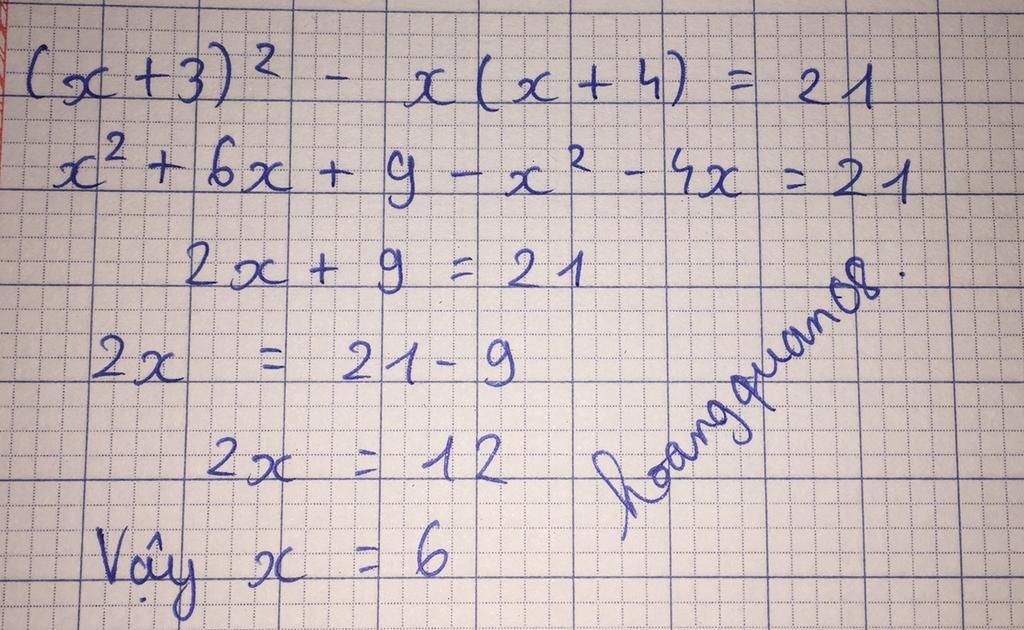 (x + 3)² - x(x + 4) = 21
x² + 6x + 9 - x² - 4x = 21
2x + 9 = 21
2x = 21 - 9
2x = 12
Vậy x = 6
hoangquan08.